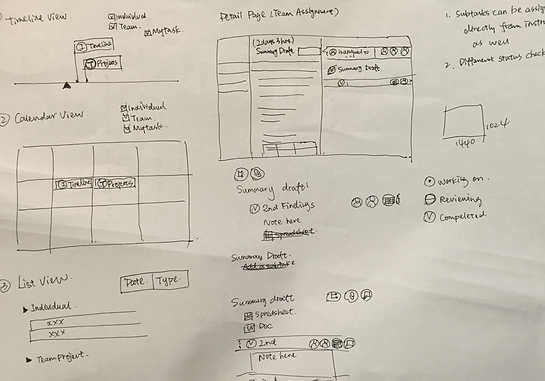 Timeline View
Individual
Team.
My Task.
Timeline
Projects
② Calendar View
Individual
Team.
My Task.
Timeline
Projects
③ List View
Date
Type.
Individual.
xxx
xxx
Team Project.
Detail Page (Team Assignment)
(2 days 3 hrs)
Summary Draft
Assigned to
Summary Draft
Summary draft!
2nd Findings
Note here
Spreadsheet.
Summary Draft.
Summary draft
Spredsheet.
Doc
2nd
Note here
1. Subtasks can be
directly from
as well
2. Different status check
1024
1440
Working on.
Reviewing
Completed.